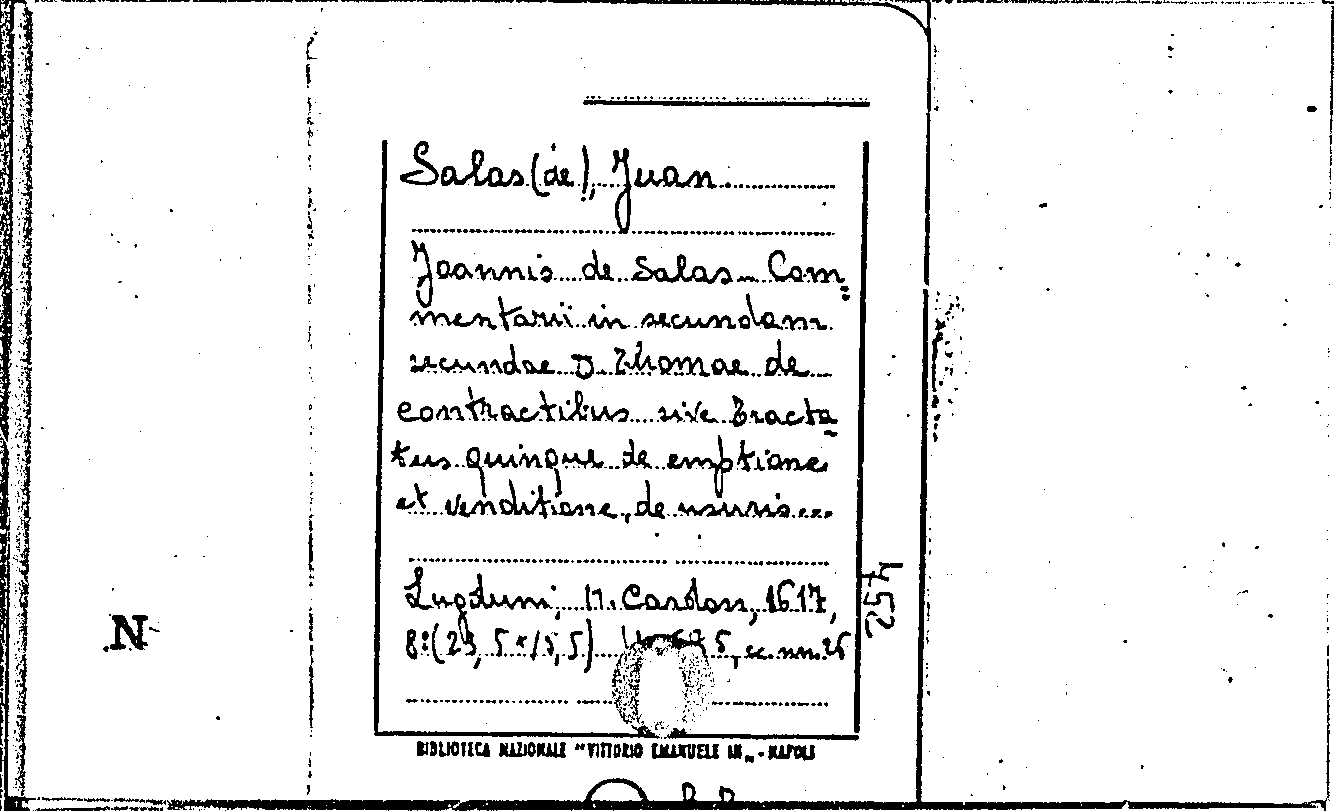 Salas (de), Juan
Joannis de Salas Com=
mentarii in secundam
secundae D. Thomae de
contractibus sive tracta=
tus quinque de emptione
et venditione, de usuris...
Lugduni, H. Cardon, 1617,
8:(23, 5x15,5) 675, cc. nn. 26
452
N
BIBLIOTECA NAZIONALE "VITTORIO EMANUELE III" - NAPOLI